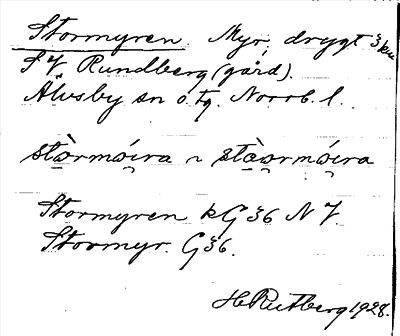 Stormyren. Myr, drygt 3 km
S V Rundberg (gård).
Älvsby sn o. tg. Norrb. l.
stɷ̀rmǿi̯ra ~ stàɷrmǿi̯ra
Stormyren kG 36 N V.
Stormyr. G 36.
H Rutberg 1928.